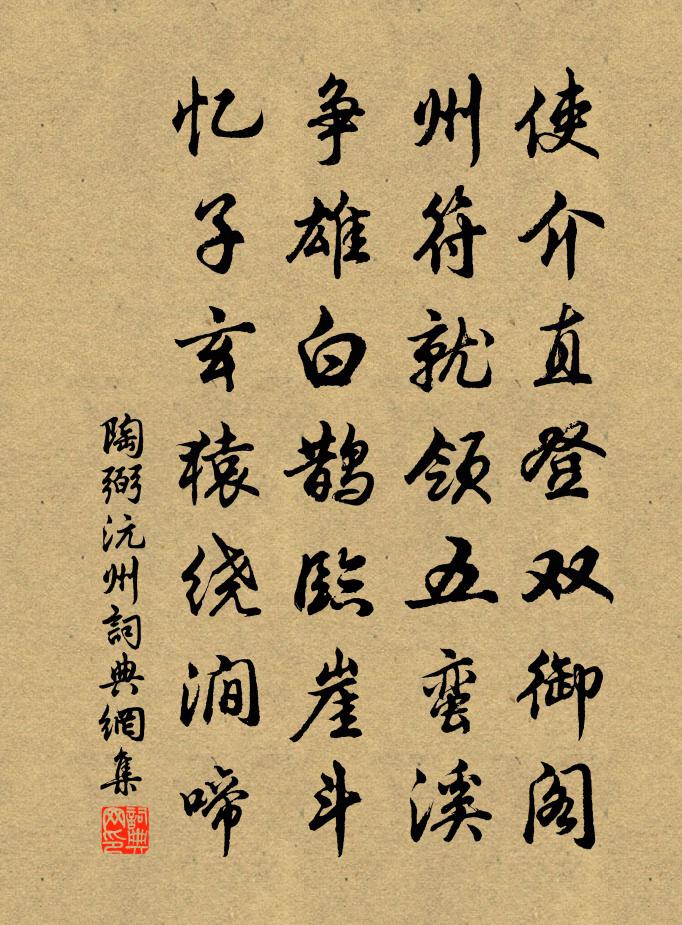 使介直登双御阁
州符就领五蛮溪
争雄白鹊临崖斗
忆子玄猿绕涧啼
陶弼沅州詞典網集
詞典网印